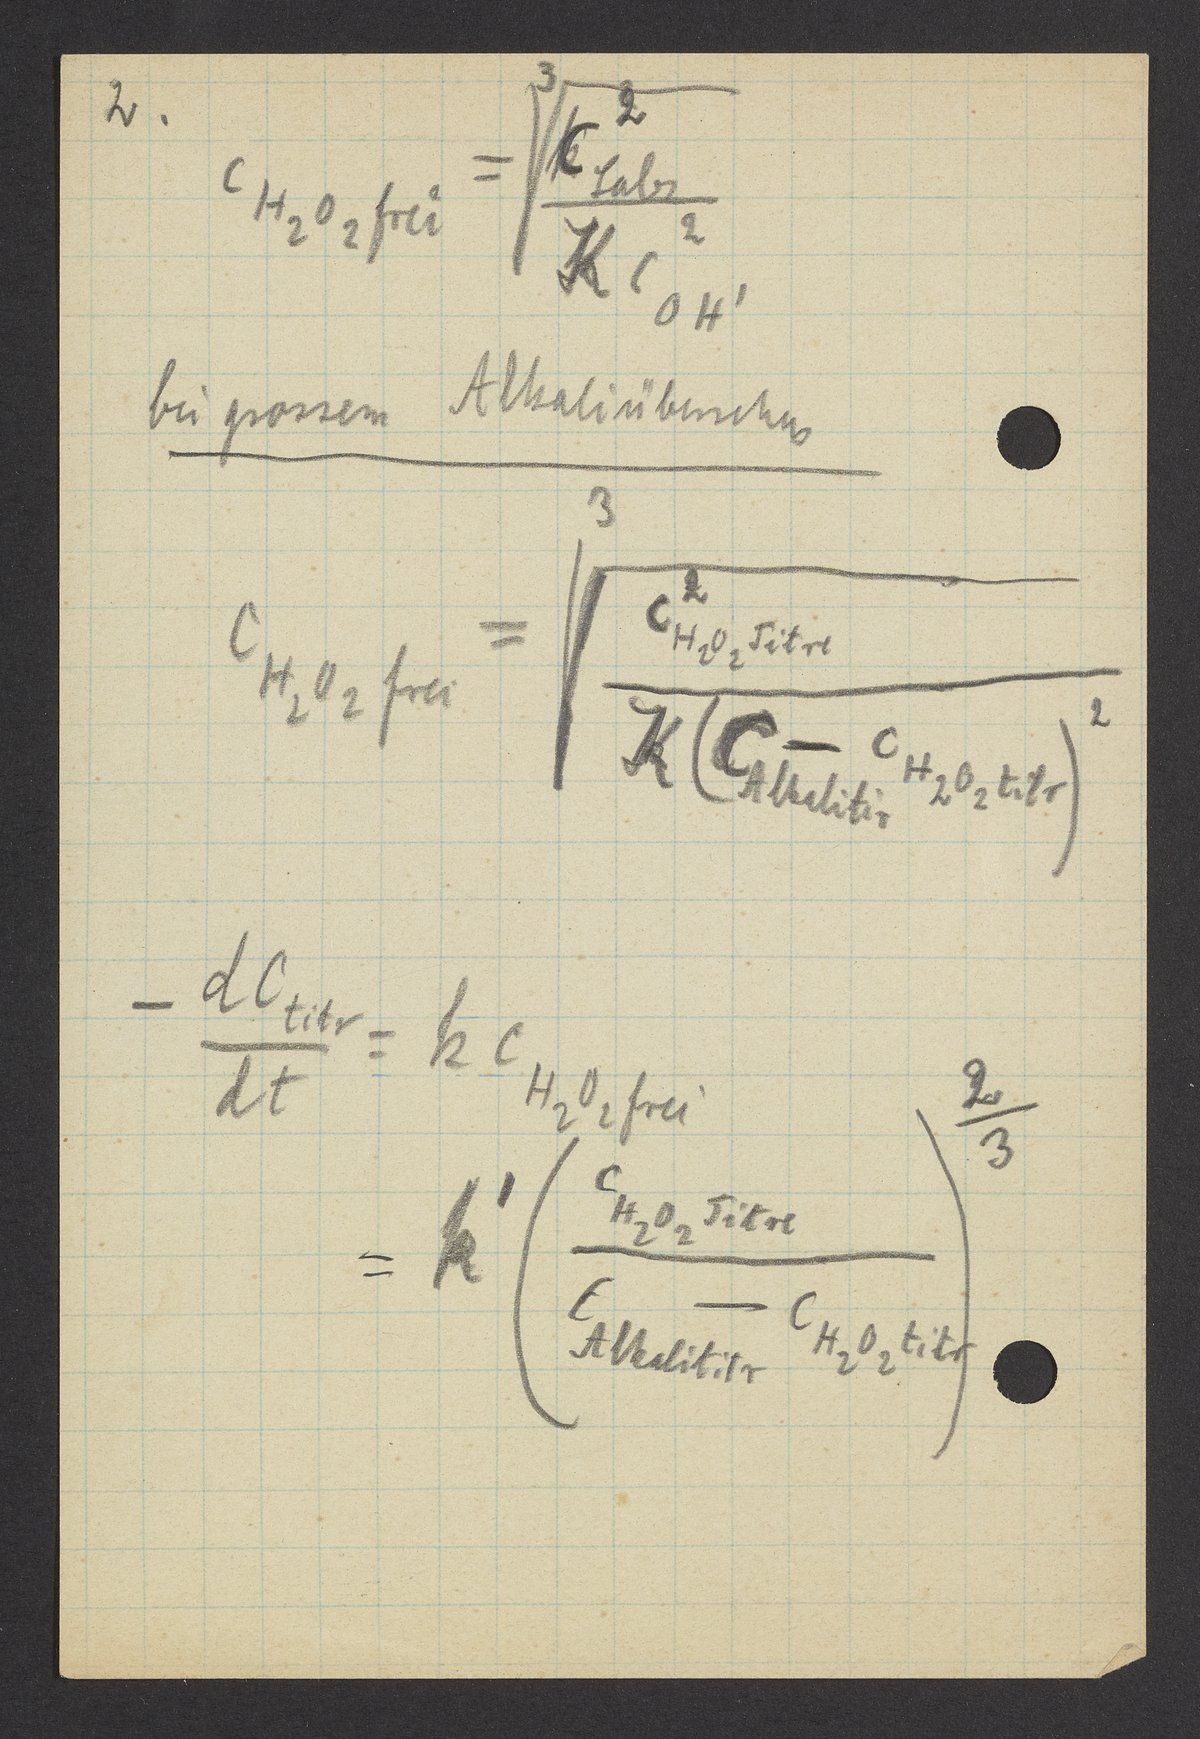 2.
c_{H₂O₂ frei} = ∛(c²_{Salz} / K c²_{OH'})
bei grossem Alkaliüberschuss
c_{H₂O₂ frei} = ∛(c²_{H₂O₂ Titre} / K (C_{Alkalititr} — c_{H₂O₂ titr})²)
— dC_{titr} / dt = k c_{H₂O₂ frei}
= k' (c_{H₂O₂ Titre} / c_{Alkalititr} — c_{H₂O₂ titr})^{2/3}